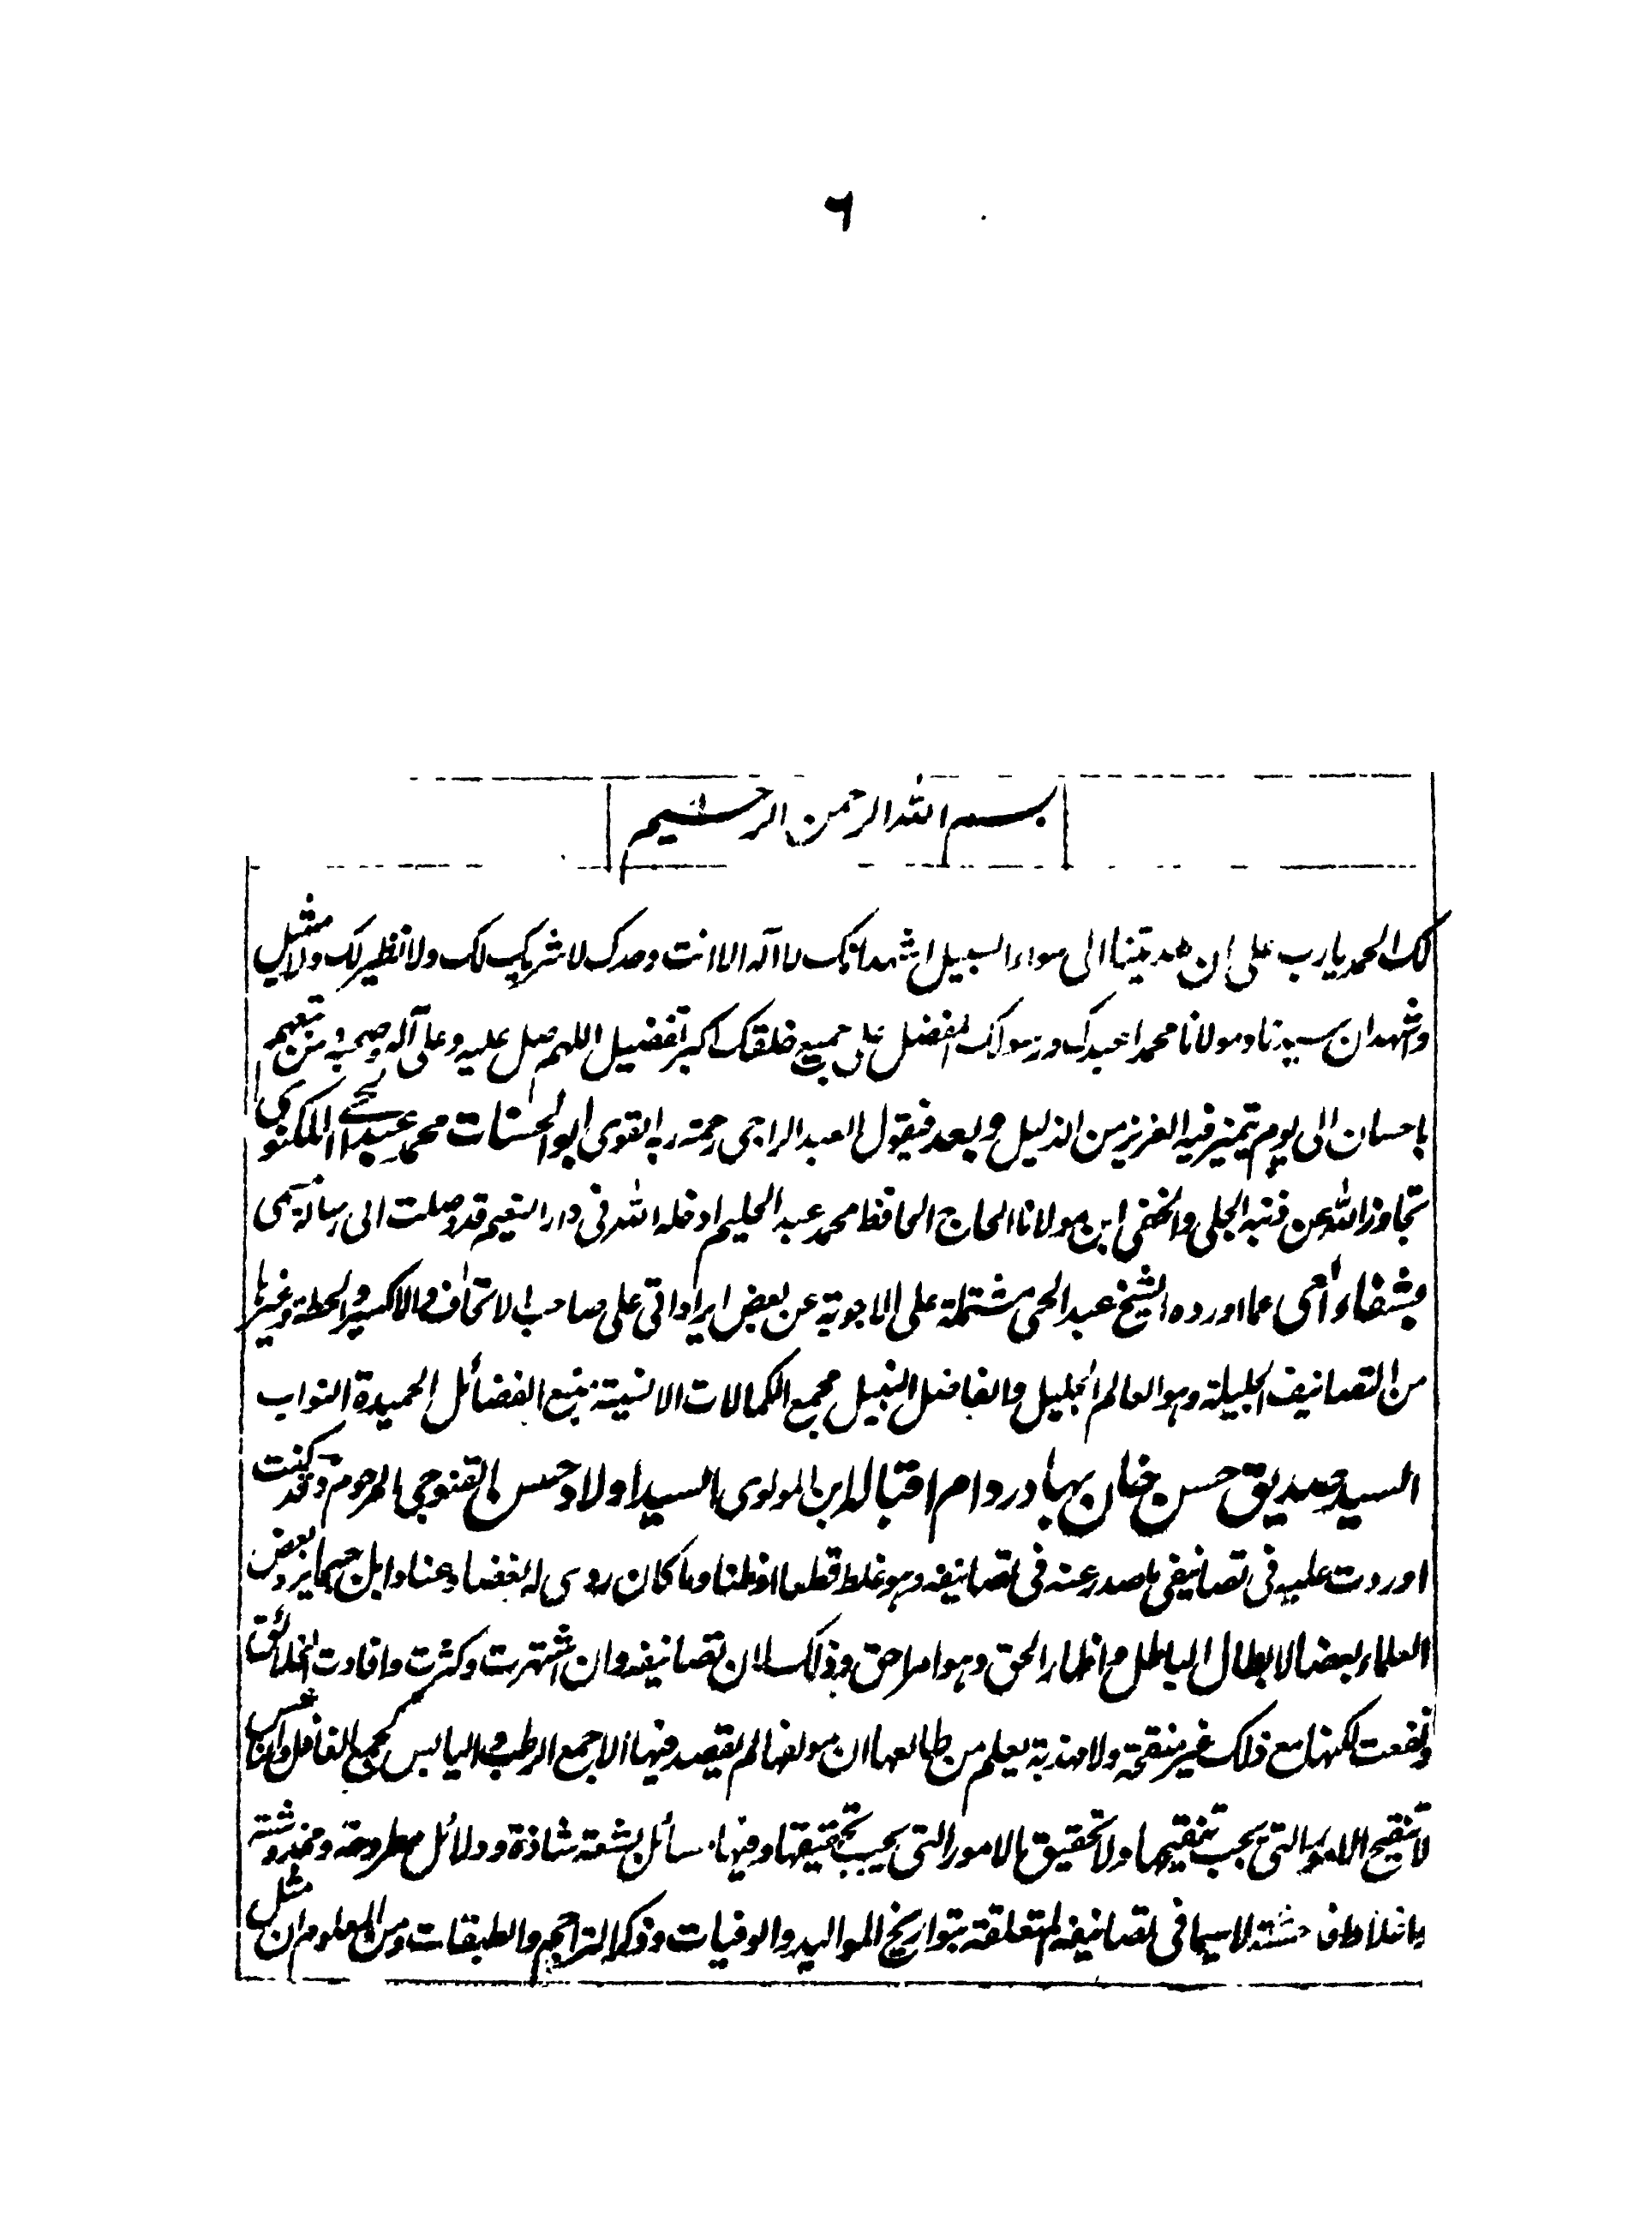 ٦
بسم الله الرحمن الرحيم
لك الحمد يا رب على ان هديتنا الى سواء السبيل اشهد انك لا آله الا انت وحدك لا شريك لك ولا نظير لك ولا مثيل
واشهد ان سيدنا ومولانا محمدا عبدك ورسولك المفضل على جميع خلقك اكبر تفضيل اللهم صل عليه وعلى آله وصحبه ومن تبعهم
باحسان الى يوم يتميز فيه العزيز من الذليل وبعد فيقول العبد الراجى رحمة ربه القوى ابو الحسنات محمد عبد الحى اللكنوى
تجاوز الله عن ذنبه الجلى والخفى ابن مولانا الحاج الحافظ محمد عبد الحليم ادخله الله فى دار النعيم قد وصلت الى رسالة تسمى
بشفاء العى عما اورده الشيخ عبد الحى مشتملة على الاجوبة عن بعض ايراداتى على صاحب الاتحاف والاكسير والحطة وغيرها
من التصانيف الجليلة وهو العالم الجليل والفاضل النبيل مجمع الكمالات الانسية منبع الفضائل الحميدة النواب
السيد صديق حسن خان بهادر دام اقباله ابن المولوى السيد اولاد حسن القنوجى المرحوم وقد كنت
اوردت عليه فى تصانيفى ما صدر عنه فى تصانيفه وهو غلط قطعا او ظنا وما كان ردى له بغضا وعنادا بل حسبما يرد بعض
العلماء بعضا لابطال الباطل واظهار الحق وهو امر احق وذلك لان تصانيفه وان اشتهرت وكثرت وافادت الخلائق
ونفعت لكنها مع ذلك غير منقحة ولا مهذبة يعلم من طالعها ان مولفها لم يقصد فيها الا جمع الرطب واليابس كجمع الغافل والناعس
لا تنقيح الامور التى يجب تنقيحها ولا تحقيق الامور التى يجب تحقيقها وفيها مسائل بشعة شاذة ودلائل مطروحة ومخدوشة
واغلاط فاحشة لا سيما فى تصانيفه المتعلقة بتواريخ المواليد والوفيات وذكر التراجم والطبقات ومن المعلوم ان مثل